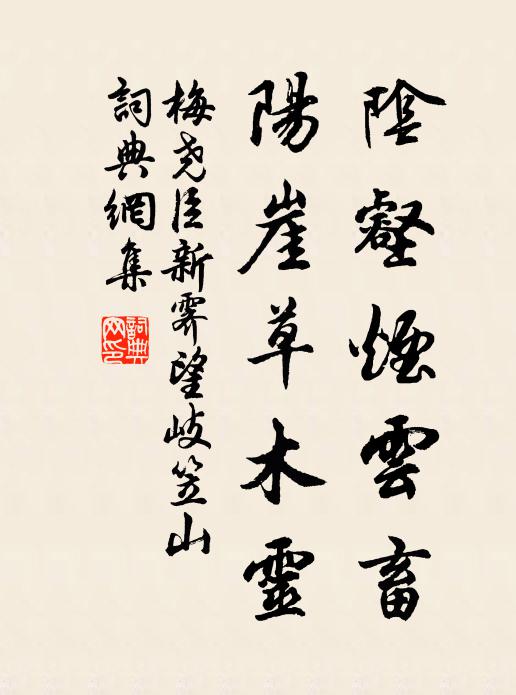 陰壑煙雲畜
陽崖草木靈
梅尧臣新霽望岐笠山
詞典網集
詞典网印